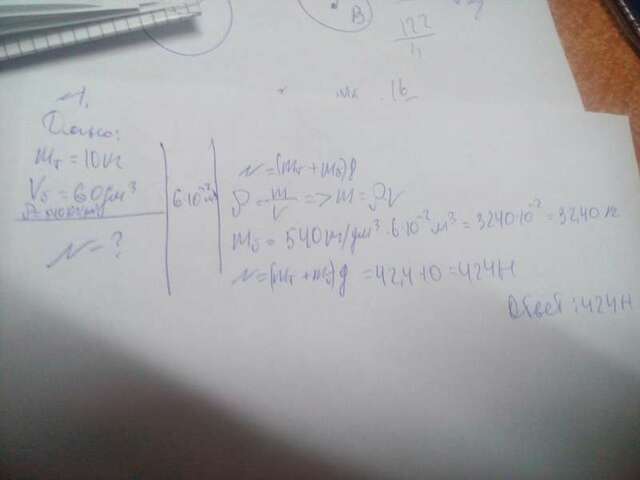 B
122
4
16
№1.
Дано:
mт = 10 кг
Vб = 60 дм³
N = ?
6·10⁻² м³
N = (mт + mб)g
ρ = m/V => m = ρV
mб = 540 кг/дм³ · 6·10⁻² м³ = 3240·10⁻² = 32,40 кг
N = (mт + mб)g = 42,4·10 = 424 Н
Ответ: 424 Н